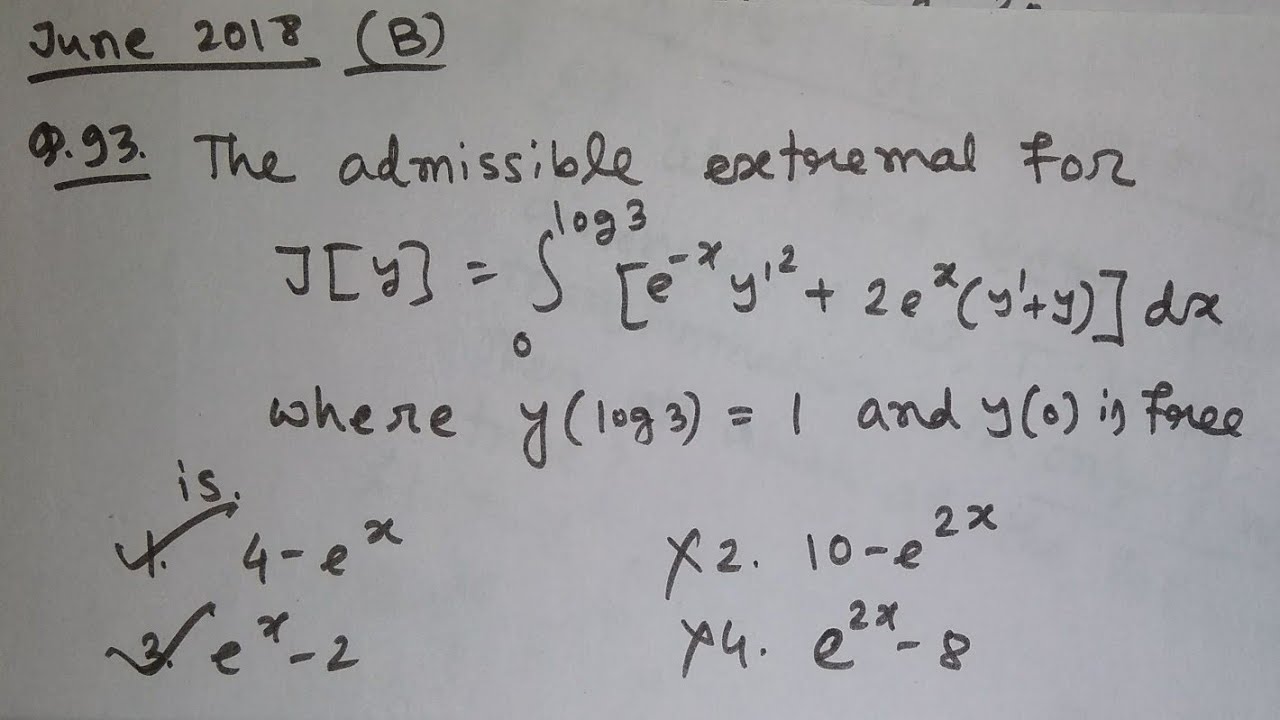 June 2018 (B)
Q.93. The admissible extremal for
J[y] = ∫₀^{log3} [e^{-x} y'² + 2e^x(y'+y)] dx
where y(log3) = 1 and y(0) is free
is.
1. 4-e^x
2. 10-e^{2x}
3. e^x-2
4. e^{2x}-8